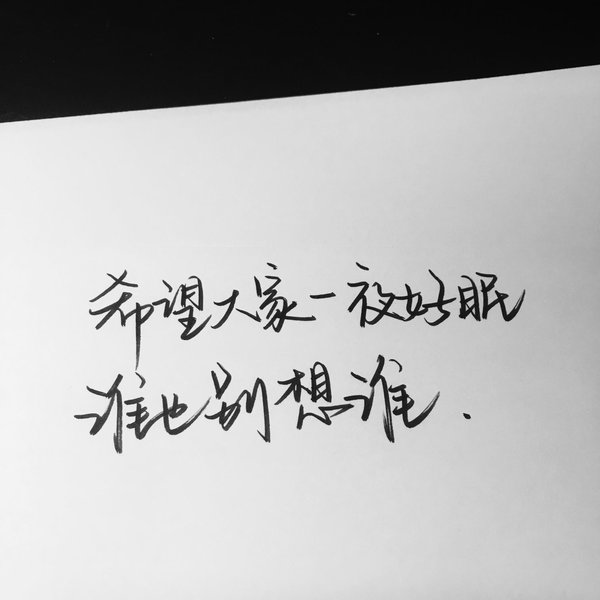 希望大家一夜好眠
谁也别想谁.